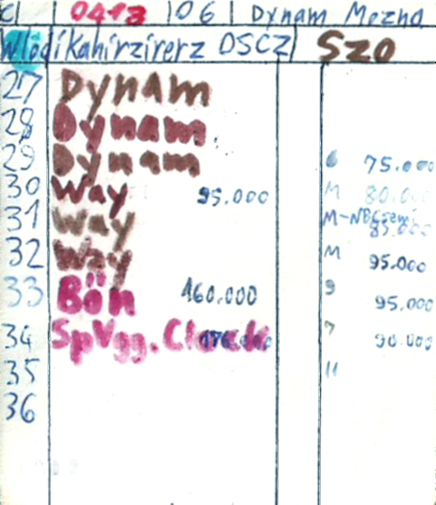 0413 06 Dynam Mozho
Wlodikahirzirerz OSCZ Szo
27 Dynam
28 Dynam
29 Dynam 6 75.000
30 Way 95.000 M 80.000
31 Way M-NB 85.000
32 Way M 95.000
33 Bön 160.000 9 95.000
34 SpVgg. Clock 7 90.000
35 11
36